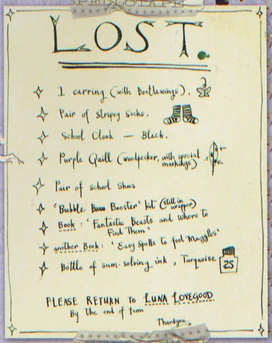 LOST.
1 earring (with Beetlewings).
Pair of Stripey Socks.
School Cloak — Black.
Purple Quill (woodpecker, with special
markings)
Pair of school Shoes
'Bubble Boost Booster' hat (still in
wrapper)
Book: 'Fantastic Beasts and where to
Find Them'
another Book: 'Easy Spells to fool Muggles'
Bottle of sum-solving ink, Turquoise
25
PLEASE RETURN TO LUNA LOVEGOOD
By the end of term
Thankyou